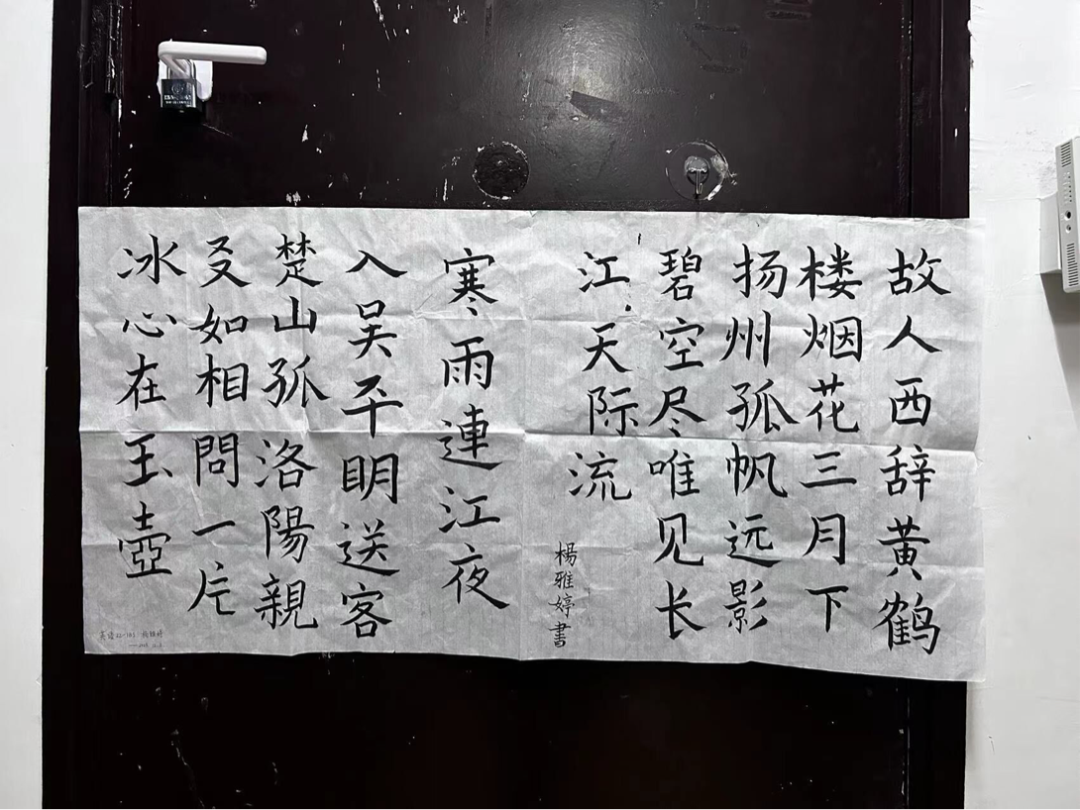 故人西辞黄鹤
楼烟花三月下
扬州孤帆远影
碧空尽唯见长
江天际流
楊雅婷書
寒雨連江夜
入吴平明送客
楚山孤洛陽親
友如相問一片
冰心在玉壺